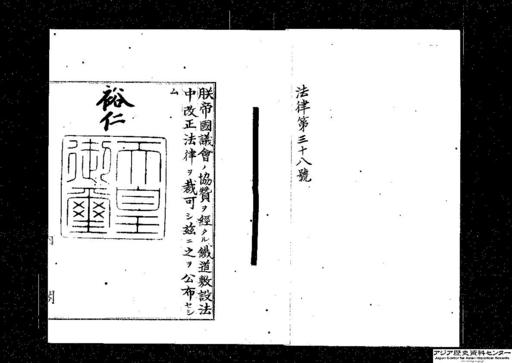 法律第三十八號
朕帝國議會ノ協贊ヲ經タル鐵道敷設法
中改正法律ヲ裁可シ玆ニ之ヲ公布セシ
ム
裕仁
天皇
御璽
内 閣
アジア歴史資料センター
Japan Center for Asian Historical Records